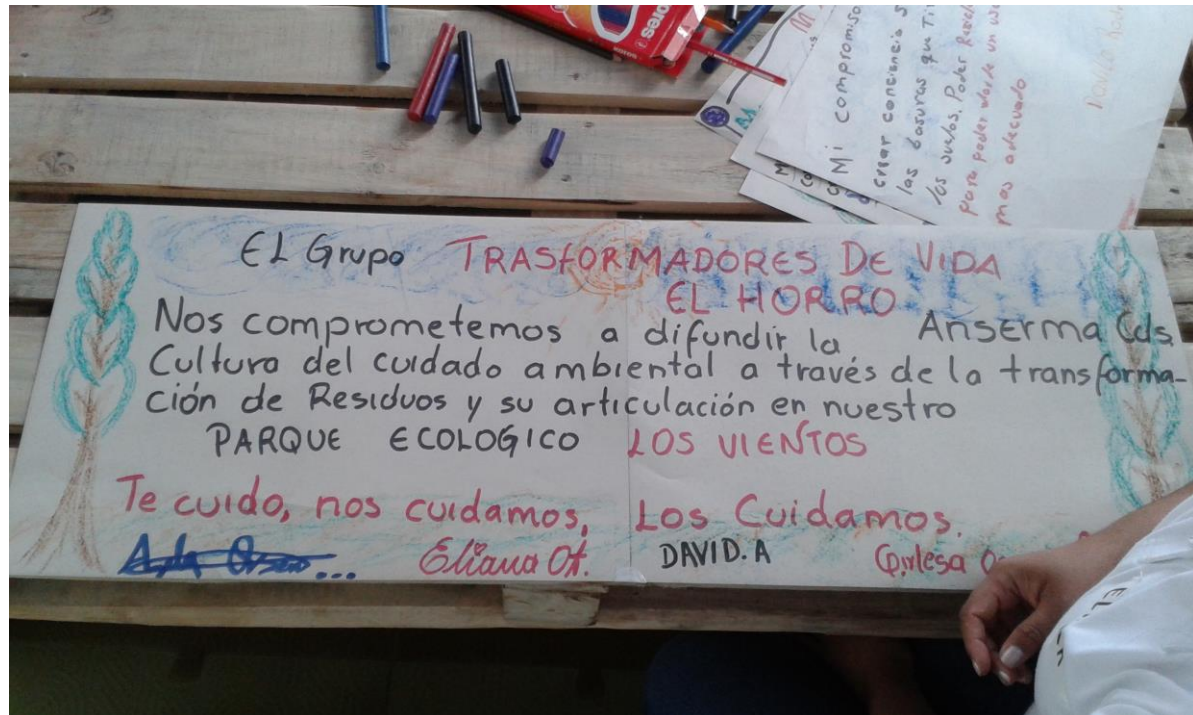 Mi compromiso
crear conciencia
las basuras que
los suelos. Poder
para poder darle un uso
mas adecuado
EL Grupo TRASFORMADORES DE VIDA
EL HORRO
Nos comprometemos a difundir la Anserma Cds.
Cultura del cuidado ambiental a través de la transforma-
ción de Residuos y su articulación en nuestro
PARQUE ECOLOGICO LOS VIENTOS
Te cuido, nos cuidamos, Los Cuidamos.
Eliana Ot. DAVID. A